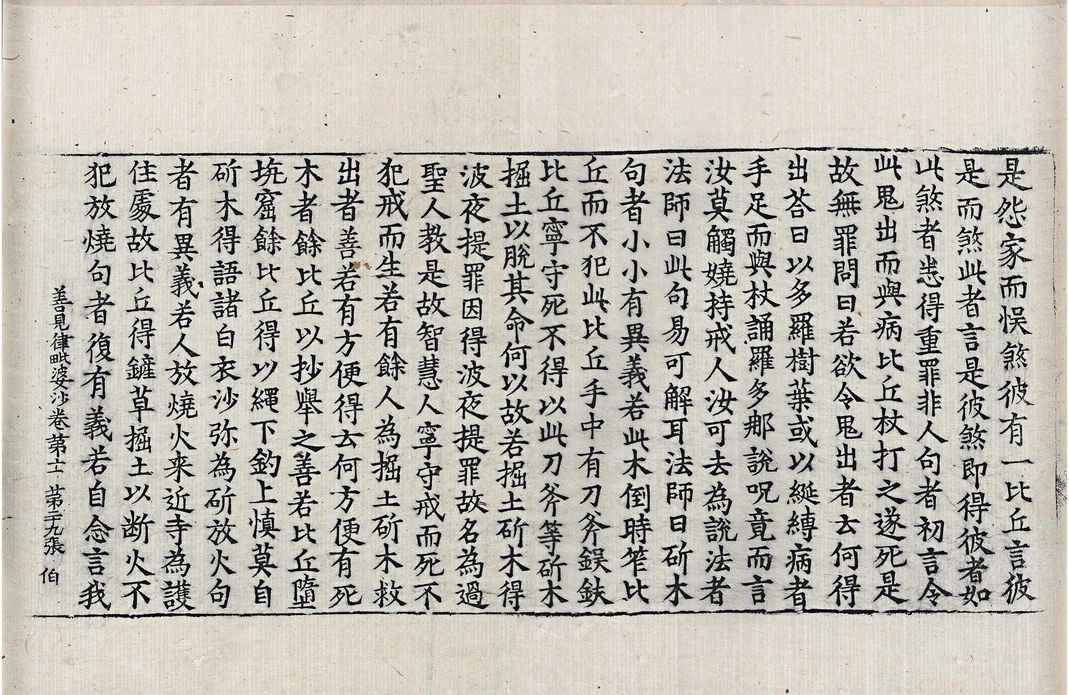 是怨家而悮煞彼有一比丘言彼
是而煞此者言是彼煞即得彼者如
此煞者悉得重罪非人句者初言令
此鬼出而與病比丘杖打之遂死是
故無罪問曰若欲令鬼出者去何得
出荅曰以多羅樹葉或以綖縛病者
手足而與杖誦羅多那說呪竟而言
汝莫觸嬈持戒人汝可去為說法者
法師曰此句易可解耳法師曰斫木
句者小小有異義若此木倒時笮比
丘而不犯此比丘手中有刀斧鋘鈇
比丘寧守死不得以此刀斧等斫木
掘土以脫其命何以故若掘土斫木得
波夜提罪因得波夜提罪故名為過
聖人教是故智慧人寧守戒而死不
犯戒而生若有餘人為掘土斫木救
出者善若有方便得去何方便有死
木者餘比丘以抄舉之善若比丘墮
坑窟餘比丘得以繩下釣上慎莫自
斫木得語諸白衣沙弥為斫放火句
者有異義若人放燒火来近寺為護
住處故比丘得鏟草掘土以断火不
犯放燒句者復有義若自念言我
善見律毗婆沙卷第十一 苐二十九張 伯